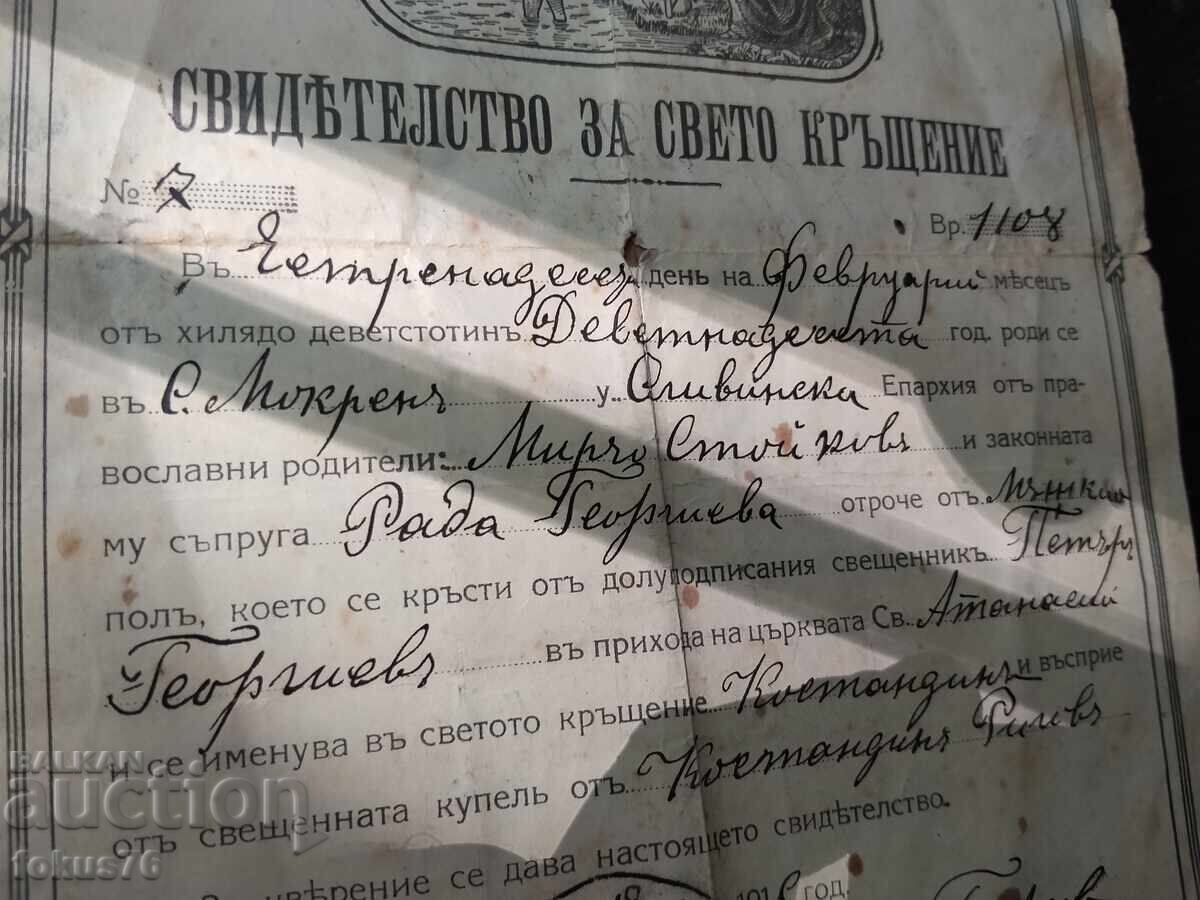 СВИДѢТЕЛСТВО ЗА СВЕТО КРЪЩЕНИЕ
№ 7
Вр. 1108
Въ Четренадесеть день на Февруарий мѣсецъ
отъ хилядо деветстотинъ Деветнадесета год. роди се
въ С. Мокренъ у Сливинска Епархия отъ пра-
вославни родители: Мирчо Стойковъ и законната
му съпруга Рада Георгиева отроче отъ Мъжкий
полъ, което се кръсти отъ долуподписания свещенникъ Петъръ
Георгиевъ въ прихода на църквата Св. Атанасий
и се именува въ светото кръщение Костандинъ и въсприе
отъ свещенната купель отъ Костандинъ
се дава настоящето свидѣтелство.
год.
BALKAN
auction
fokus76